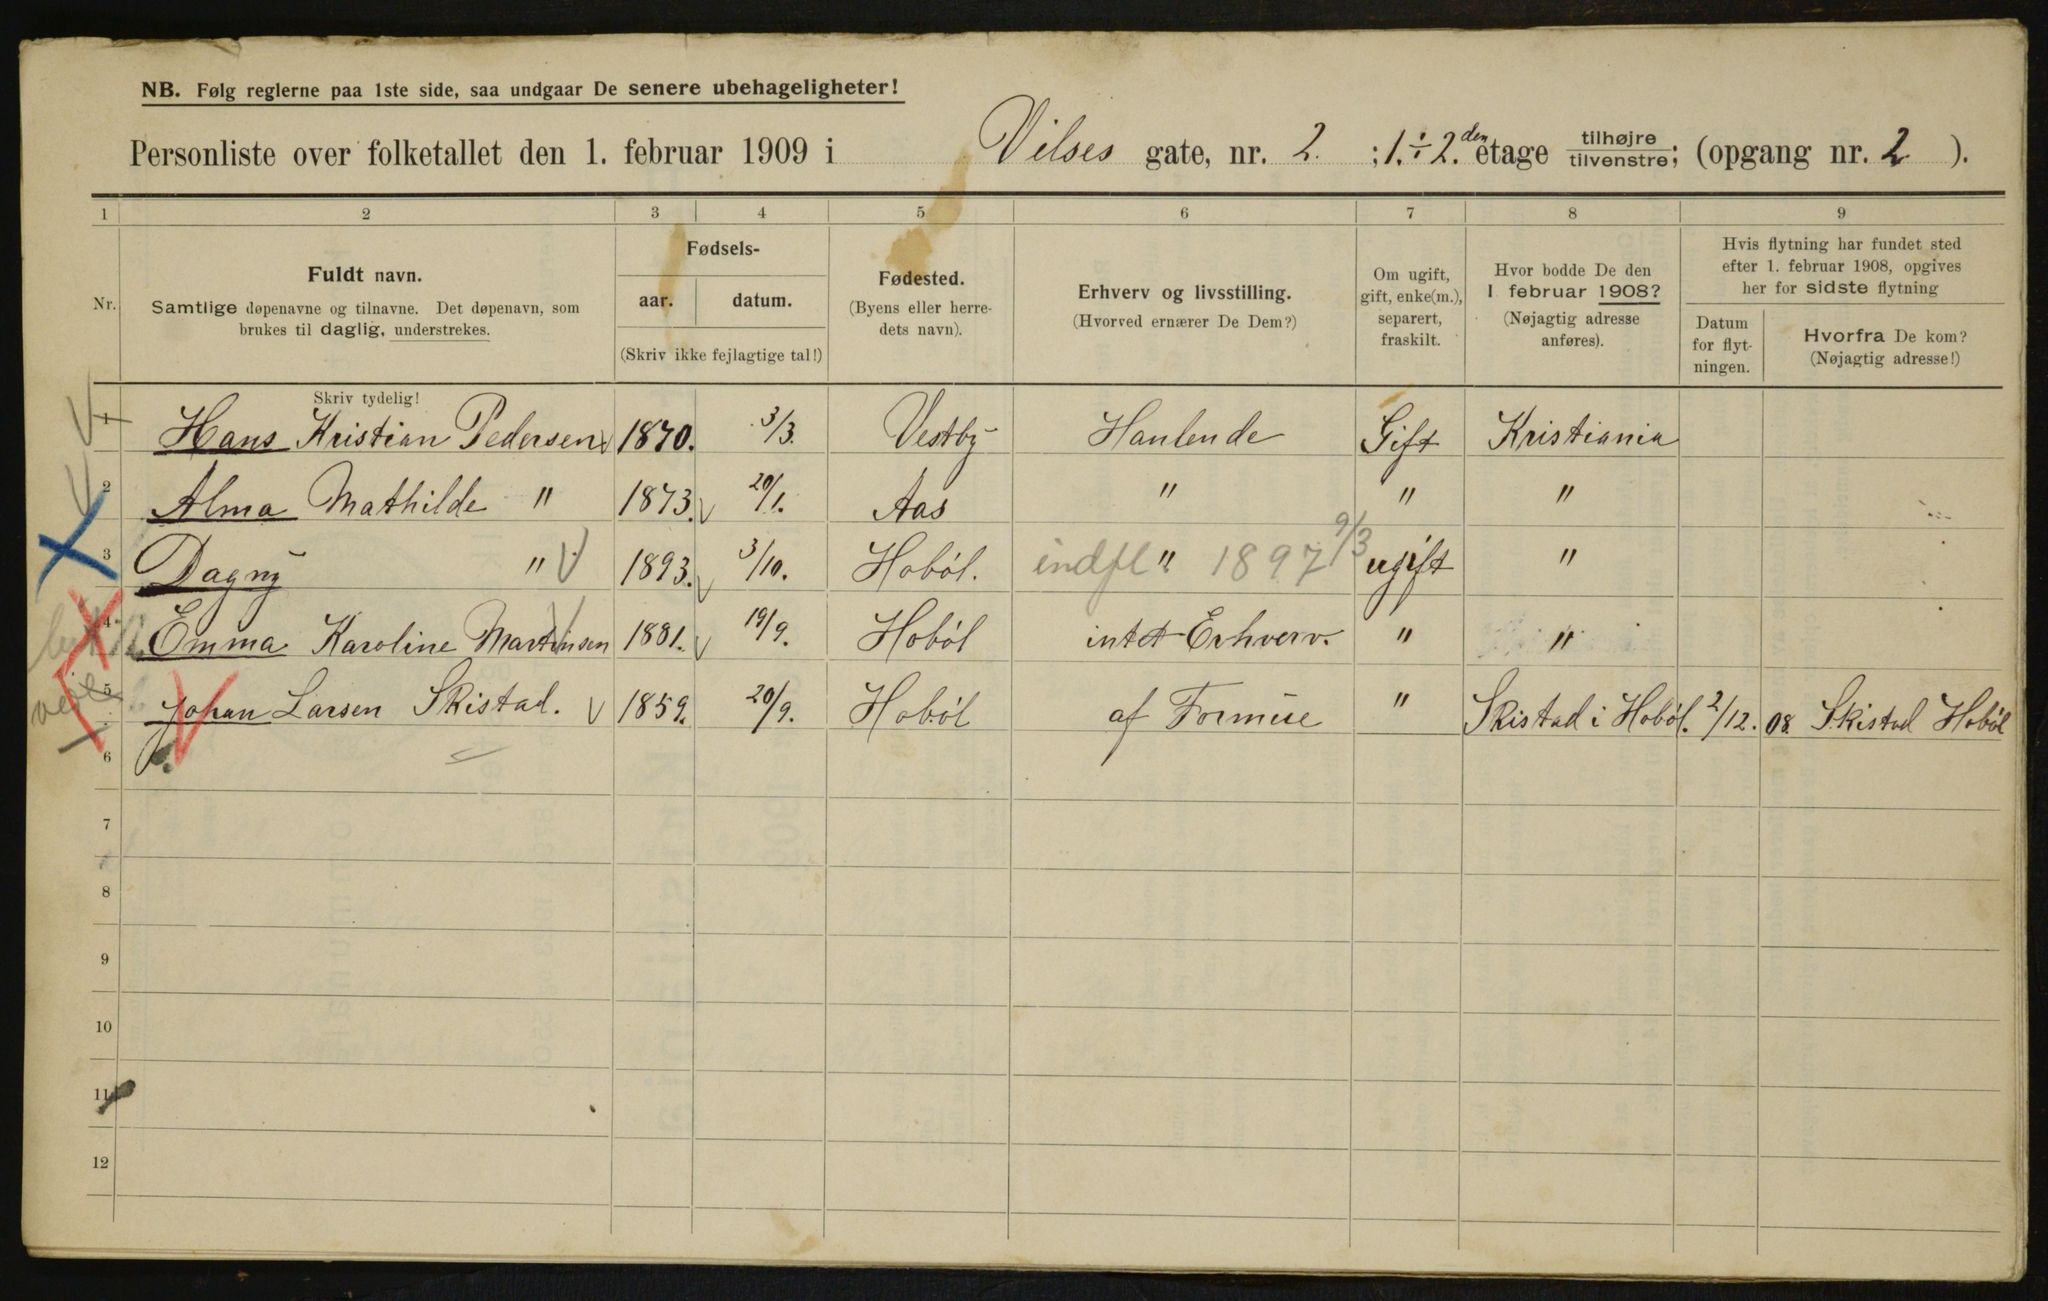 NB. Følg reglerne paa 1ste side, saa undgaar De senere ubehageligheter!
Personliste over folketallet den 1. februar 1909 i Vilses gate, nr. 2. ; 1. ÷ 2. den etage tilhøjre / tilvenstre; (opgang nr. 2 ).
1 2 3 4 5 6 7 8 9
Nr.
Fuldt navn.
Samtlige døpenavne og tilnavne. Det døpenavn, som
brukes til daglig, understrekes.
Skriv tydelig!
Fødsels-
aar. datum.
(Skriv ikke fejlagtige tal!)
Fødested.
(Byens eller herre-
dets navn).
Erhverv og livsstilling.
(Hvorved ernærer De Dem?)
Om ugift,
gift, enke(m.),
separert,
fraskilt.
Hvor bodde De den
1 februar 1908?
(Nøjagtig adresse
anføres).
Hvis flytning har fundet sted
efter 1. februar 1908, opgives
her for sidste flytning
Datum
for flyt-
ningen.
Hvorfra De kom?
(Nøjagtig adresse!)
1 Hans Kristian Pedersen 1870. 3/3. Vestby Hanlende Gift Kristiania
2 Alma Mathilde " 1873. 20/1. Aas " " "
3 Dagny " 1893. 3/10. Hoböl. indfl " 1897 9/3 ugift "
4 Emma Karoline Martinsen 1881. 19/9. Hoböl intet Erhverv. " "
5 Johan Larsen Skistad. 1859. 20/9. Hoböl af Formue " Skistad i Hoböl. 2/12. 08. Skistad Hoböl
6
7
8
9
10
11
12